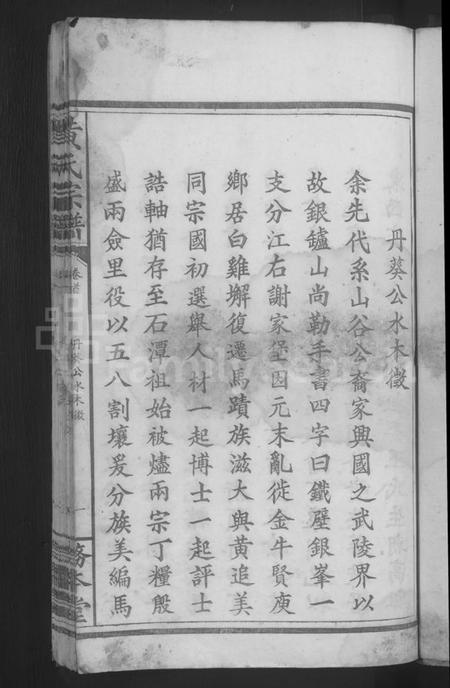 丹葵公水木徵
余先代系山谷公裔家興國之武陵界以
故銀罏山尚勒手書四字曰鐵壁銀峯一
支分江右謝家堡因元末亂徙金牛賢庾
鄉居白雞墩復遷馬蹟族滋大與黃追美
同宗國初選舉人材一起博士一起評士
誥軸猶存至石潭祖始被燼兩宗丁糧殷
盛兩僉里役以五八割壤爰分族美編馬
黃氏宗譜
卷首
丹葵公水木徵
務本堂